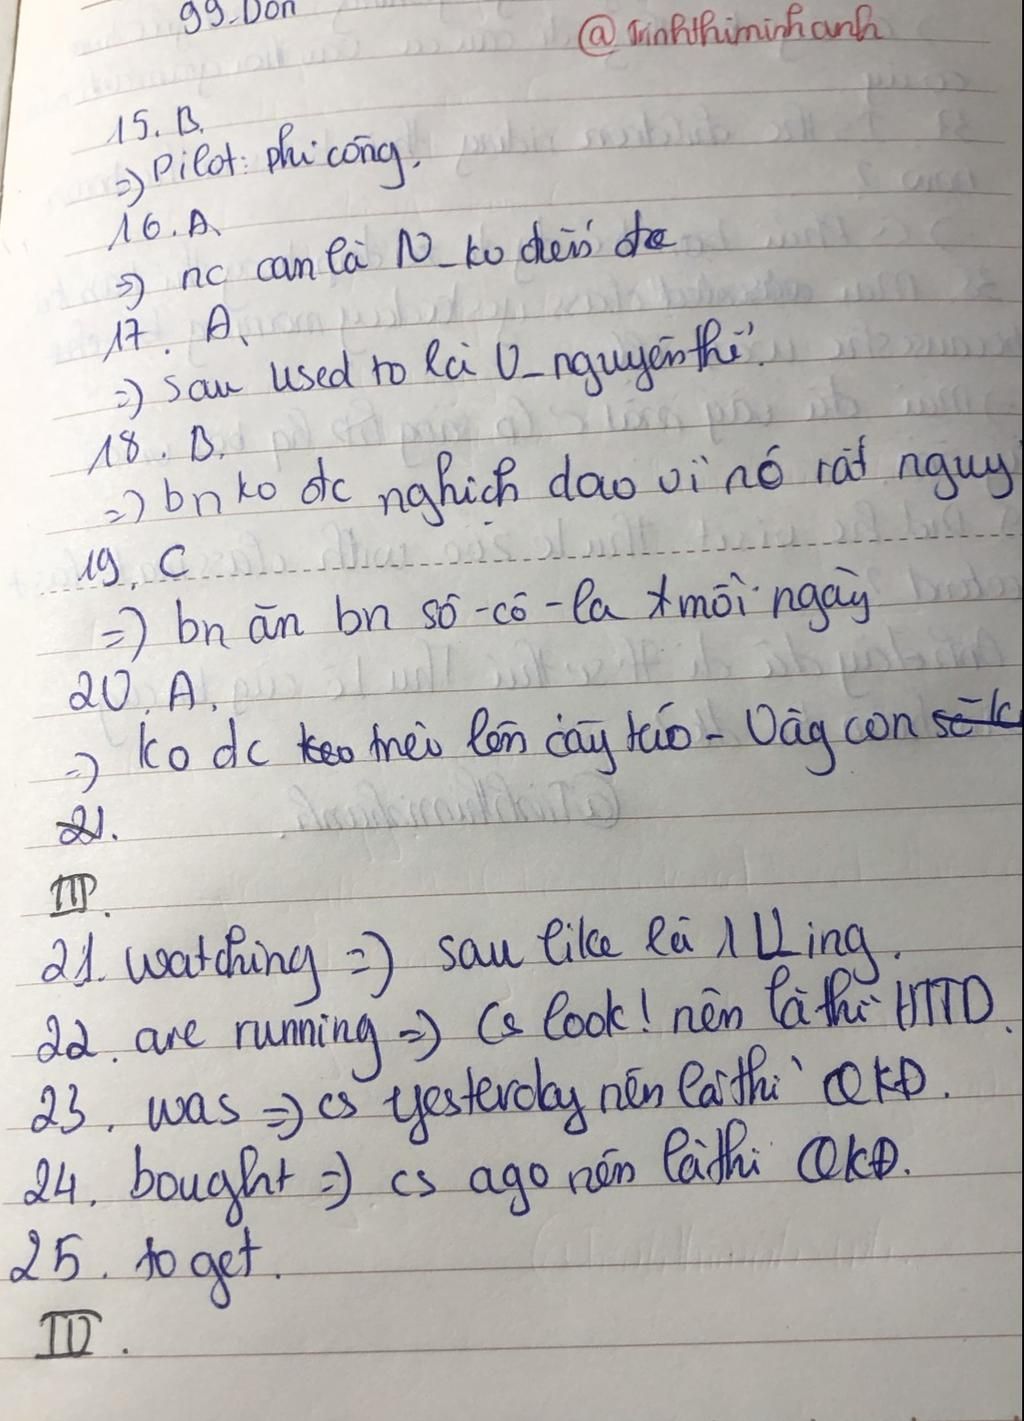 99. Don
@Trinhthiminhanh
15. B.
=> Pilot: phi công.
16. A.
=> nc can là N_ko đếm đc
17. A.
=> sau used to là V_nguyên thể.
18. B.
=> bn ko đc nghịch dao vì nó rất nguy
19. C
=> bn ăn bn sô-cô-la mỗi ngày
20. A.
=> ko dc trèo lên cây táo - Vâg con
21.
III.
21. watching => sau like là 1 Ving.
22. are running => Cs look! nên là thì HTTD.
23. was => cs yesterday nên là thì QKĐ.
24. bought => cs ago nên là thì QKĐ.
25. to get.
IV.